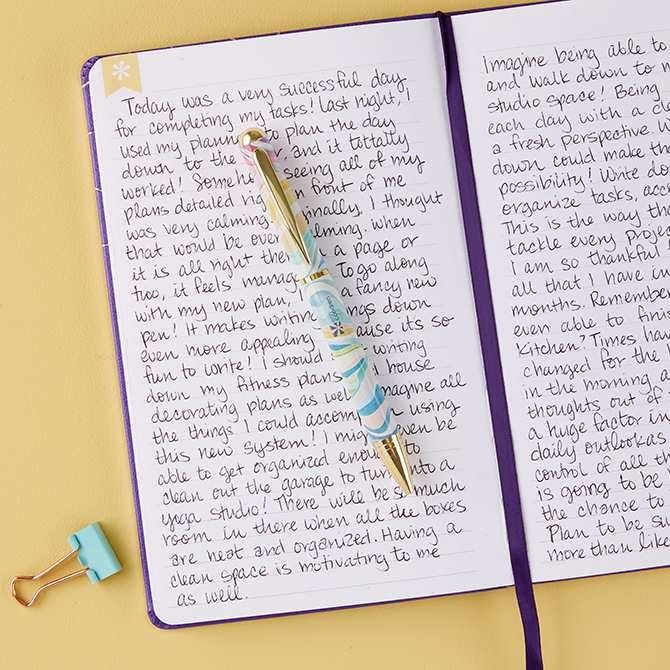 Today was a very successful day
for completing my tasks! Last night, I
used my to plan the day
down to the and it tottally
worked! seeing all of my
plans detailed front of me
was very calming. I thought
that would be When
it is all right a page or
two, it feels To go along
with my new plan, a fancy new
pen! It makes down
even more appealing its so
fun to write! I should writing
down my fitness plans house
decorating plans as all
the things I could using
this new system! I be
able to get organized to
clean out the garage to a
yoga studio! There will be so much
room in there when all the boxes
are neat and organized. Having a
clean space is motivating to me
as well.
Imagine being able to
and walk down to
studio space! Being
each day with a
a fresh perspective.
down could make
possibility! Write
organize tasks,
This is the way
tackle every
I am so thankful
all that I have in
months. Remember
even able to
Kitchen? Times
changed for the
in the morning
thoughts out of
a huge factor in
daily outlook as
control of all
is going to be
the chance to
Plan to be
more than